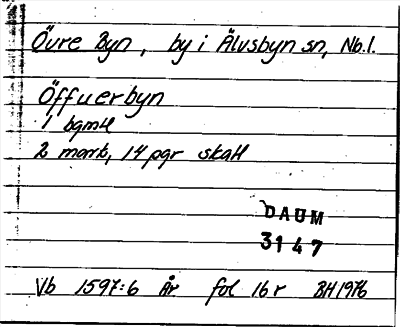 Övre Byn, by i Älvsbyn sn, Nb.l.
Öffuerbyn
1 bgmtl
2 mark, 14 pgr skatt
DAUM
3147
Vb 1597:6 År fol 16r BH 1976